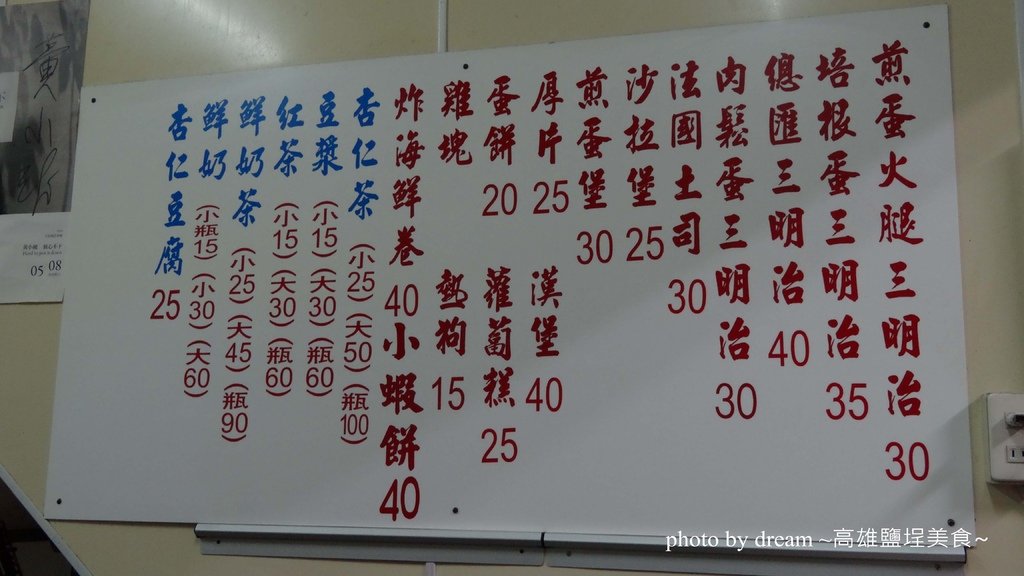 煎蛋火腿三明治 30
培根蛋三明治 35
總匯三明治 40
肉鬆蛋三明治 30
法國土司 30
沙拉堡 25
煎蛋堡 30
厚片 25
漢堡 40
蛋餅 20
蘿蔔糕 25
雞塊
熱狗 15
炸海鮮卷 40
小蝦餅 40
杏仁茶 (小25) (大50) (瓶100)
豆漿 (小15) (大30) (瓶60)
紅茶 (小15) (大30) (瓶60)
鮮奶茶 (小25) (大45) (瓶90)
鮮奶 (小瓶15) (小30) (大60)
杏仁豆腐 25
05 08
photo by dream ~高雄鹽埕美食~